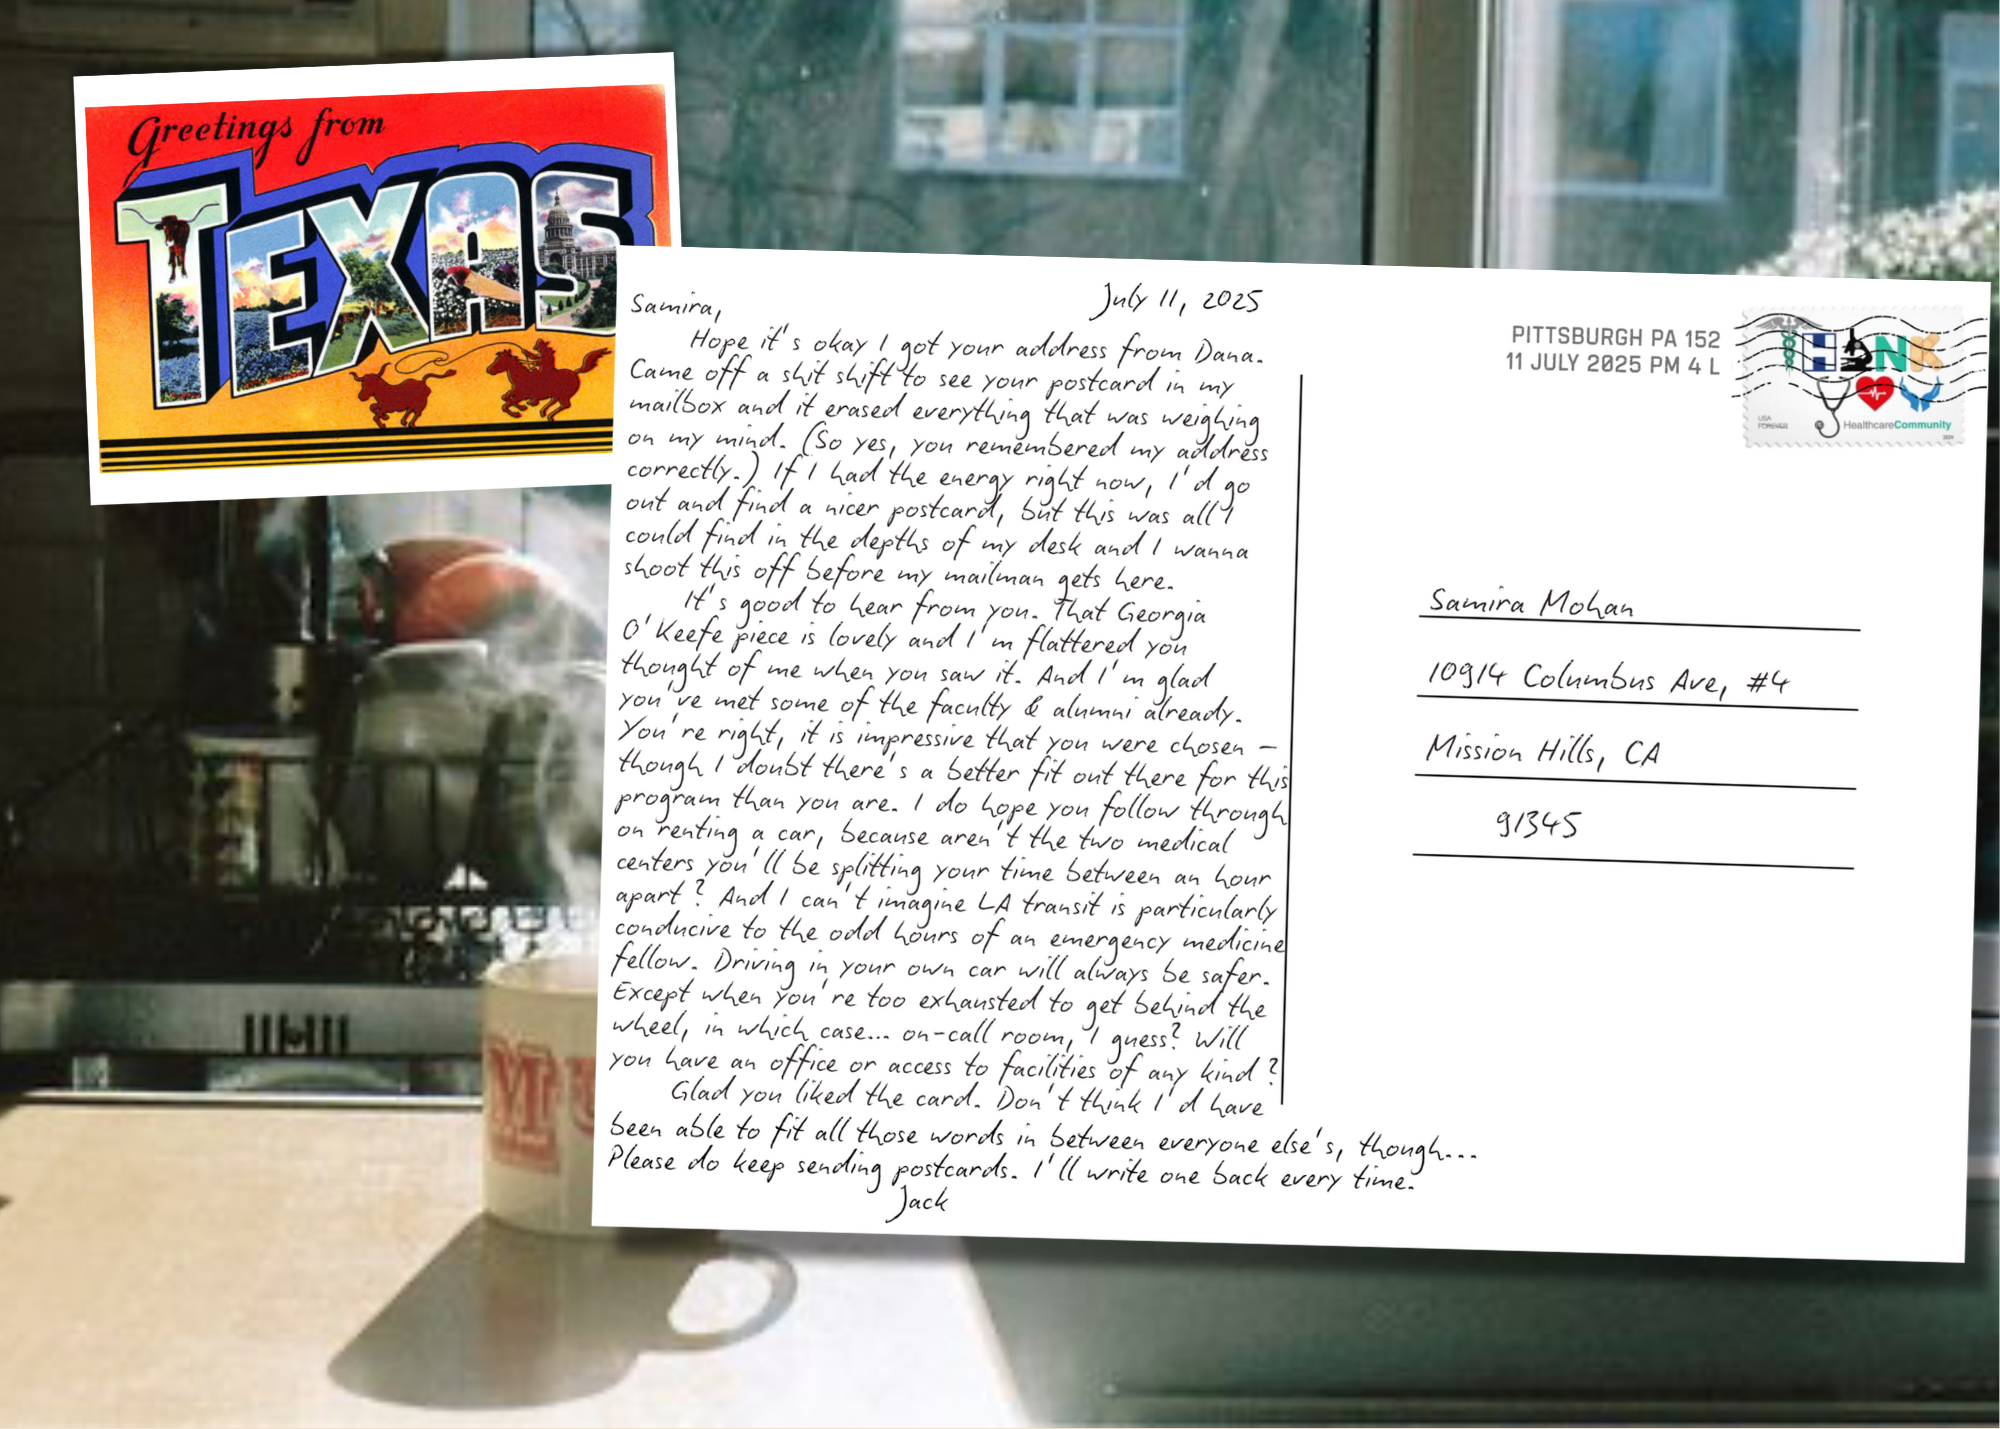 Greetings from
TEXAS
July 11, 2025
Samira,
Hope it's okay I got your address from Dana.
Came off a shit shift to see your postcard in my
mailbox and it erased everything that was weighing
on my mind. (So yes, you remembered my address
correctly.) If I had the energy right now, I'd go
out and find a nicer postcard, but this was all I
could find in the depths of my desk and I wanna
shoot this off before my mailman gets here.
It's good to hear from you. That Georgia
O'Keefe piece is lovely and I'm flattered you
thought of me when you saw it. And I'm glad
you've met some of the faculty & alumni already.
You're right, it is impressive that you were chosen –
though I doubt there's a better fit out there for this
program than you are. I do hope you follow through
on renting a car, because aren't the two medical
centers you'll be splitting your time between an hour
apart? And I can't imagine LA transit is particularly
conducive to the odd hours of an emergency medicine
fellow. Driving in your own car will always be safer.
Except when you're too exhausted to get behind the
wheel, in which case... on-call room, I guess? Will
you have an office or access to facilities of any kind?
Glad you liked the card. Don't think I'd have
been able to fit all those words in between everyone else's, though...
Please do keep sending postcards. I'll write one back every time.
Jack
PITTSBURGH PA 152
11 JULY 2025 PM 4 L
THANK
USA
FOREVER
HealthcareCommunity
2024
Samira Mohan
10914 Columbus Ave, #4
Mission Hills, CA
91345
M